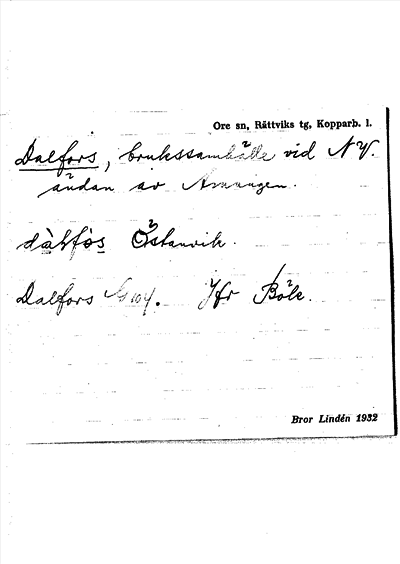 Ore sn, Rättviks tg, Kopparb. l.
Dalfors, brukssamhälle vid NV.
ändan av Amungen.
dàlfòs Östanvik.
Dalfors G 104. Jfr Böle.
Bror Lindén 1932